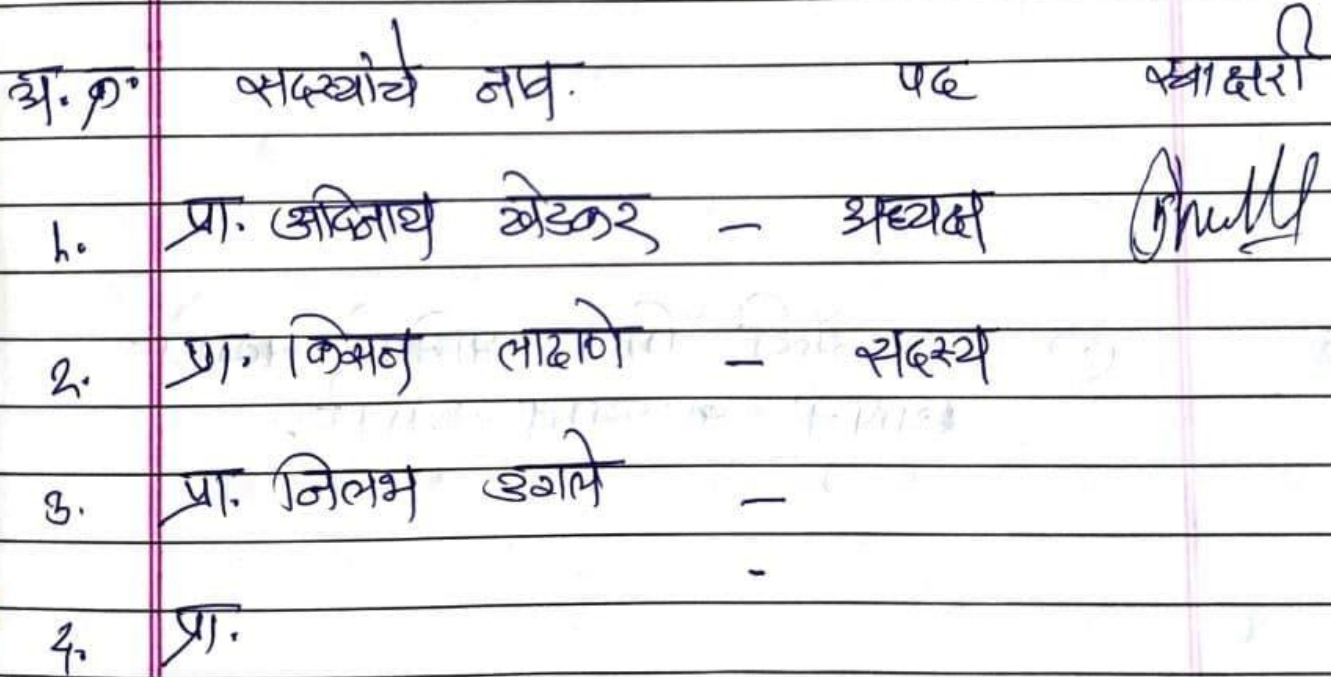 अ. क्र. सदस्यांचे नाव. पद स्वाक्षरी
1. प्रा. आदिनाथ खेडकर - अध्यक्ष
2. प्रा. किसन लादाणे - सदस्य
3. प्रा. निलम उगले -
-
4. प्रा.